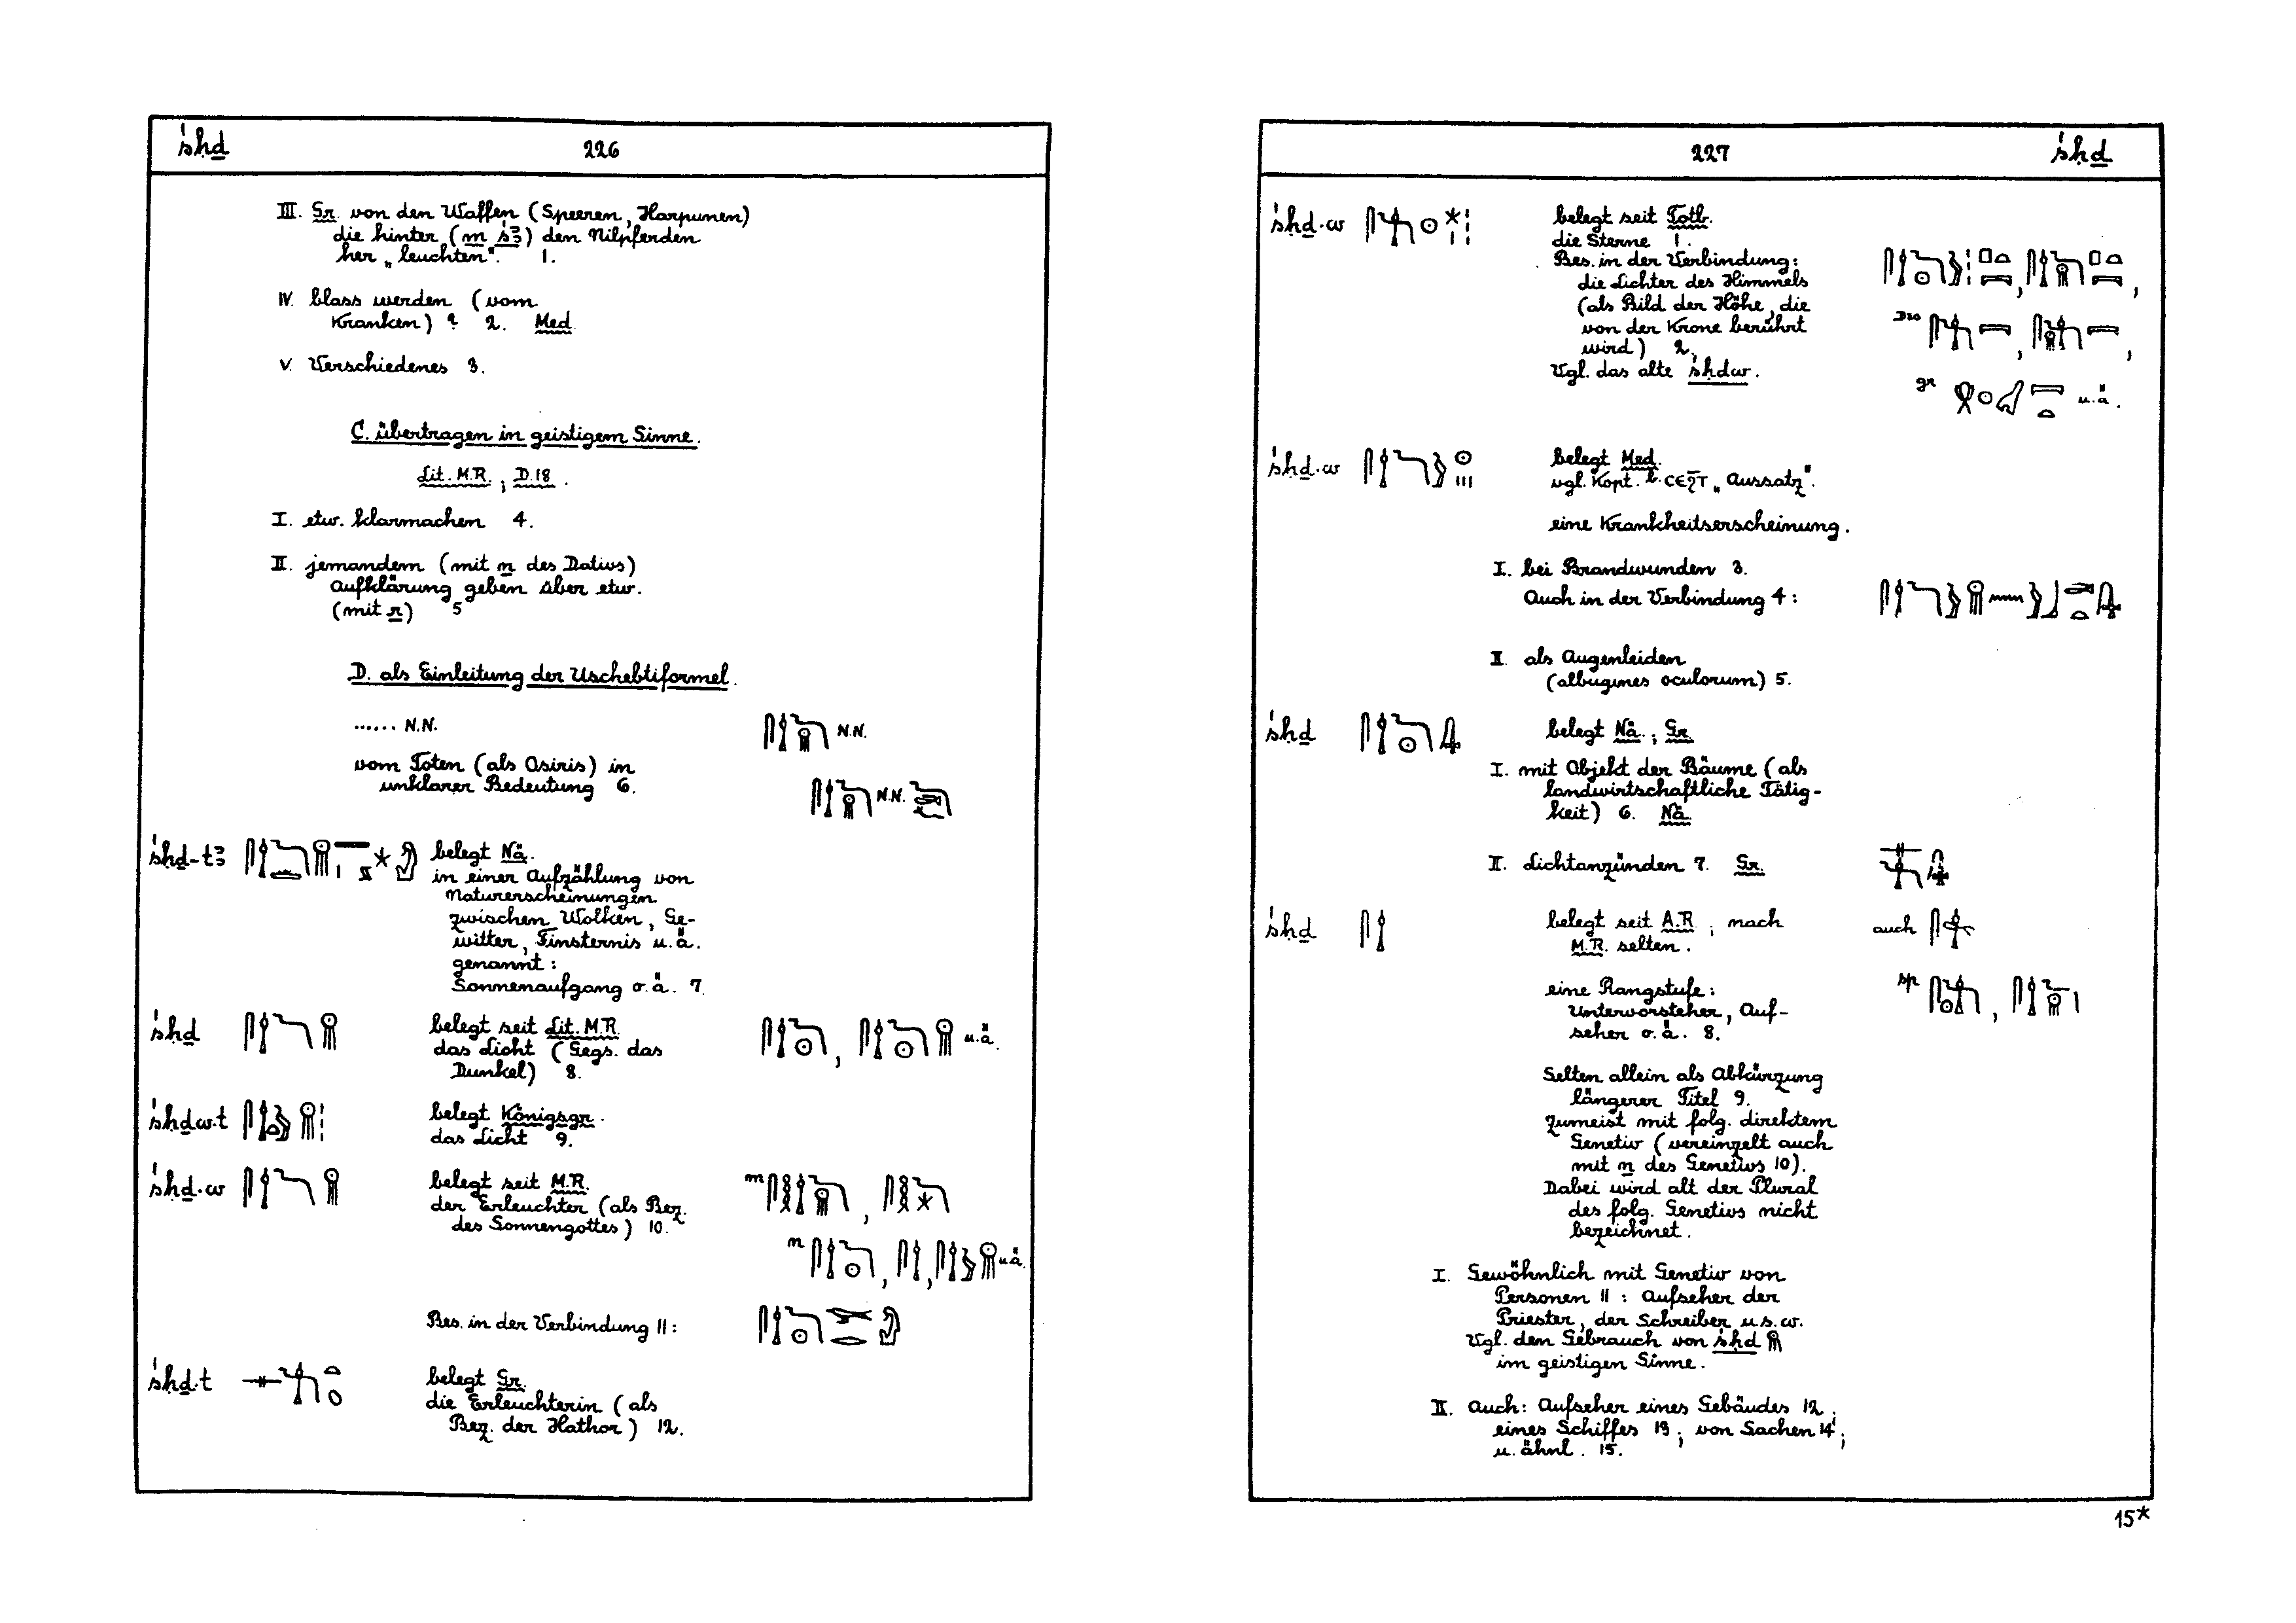 śḥḏ
226
III. Gr. von den Waffen (Speeren, Harpunen)
die hinter (m śꜣ) den Nilpferden
her „leuchten“. 1.
IV. blass werden (vom
Kranken)? 2. Med.
V. Verschiedenes 3.
C. übertragen in geistigem Sinne.
Lit. M.R.; D.18.
I. etw. klarmachen 4.
II. jemandem (mit n des Dativs)
Aufklärung geben über etw.
(mit r) 5
D. als Einleitung der Uschebtiformel.
...... N.N. N.N.
vom Toten (als Osiris) in
unklarer Bedeutung 6. N.N.
śḥḏ-tꜣ belegt Nä.
in einer Aufzählung von
Naturerscheinungen
zwischen Wolken, Ge-
witter, Finsternis u.ä.
genannt:
Sonnenaufgang o.ä. 7.
śḥḏ belegt seit Lit. M.R.
das Licht (Gegs. das u.ä.
Dunkel) 8.
śḥḏw.t belegt Königsgr.
das Licht 9.
śḥḏ.w belegt seit M.R. m
der Erleuchter (als Bez.
des Sonnengottes) 10.
n u.ä.
Bes. in der Verbindung 11:
śḥḏ.t belegt Gr.
die Erleuchterin (als
Bez. der Hathor) 12.
227
śḥḏ
śḥḏ.w belegt seit Totb.
die Sterne 1.
Bes. in der Verbindung:
die Lichter des Himmels
(als Bild der Höhe, die
von der Krone berührt D20
wird) 2.
Vgl. das alte śḥdw.
gr u.ä.
śḥḏ.w belegt Med.
vgl. Kopt. b. ⲥⲉϩⲧ „Aussatz“.
eine Krankheitserscheinung.
I. bei Brandwunden 3.
Auch in der Verbindung 4:
II. als Augenleiden
(albugines oculorum) 5.
śḥḏ belegt Nä.; Gr.
I. mit Objekt der Bäume (als
landwirtschaftliche Tätig-
keit) 6. Nä.
II. Lichtanzünden 7. Gr.
śḥḏ belegt seit A.R.; nach auch
M.R. selten.
eine Rangstufe: sp
Untervorsteher, Auf-
seher o.ä. 8.
Selten allein als Abkürzung
längerer Titel 9.
Zumeist mit folg. direktem
Genetiv (vereinzelt auch
mit n des Genetivs 10).
Dabei wird alt der Plural
des folg. Genetivs nicht
bezeichnet.
I. Gewöhnlich mit Genetiv von
Personen 11: Aufseher der
Priester, der Schreiber u.s.w.
Vgl. den Gebrauch von śḥḏ
im geistigen Sinne.
II. Auch: Aufseher eines Gebäudes 12;
eines Schiffes 13; von Sachen 14;
u. ähnl. 15.
15*